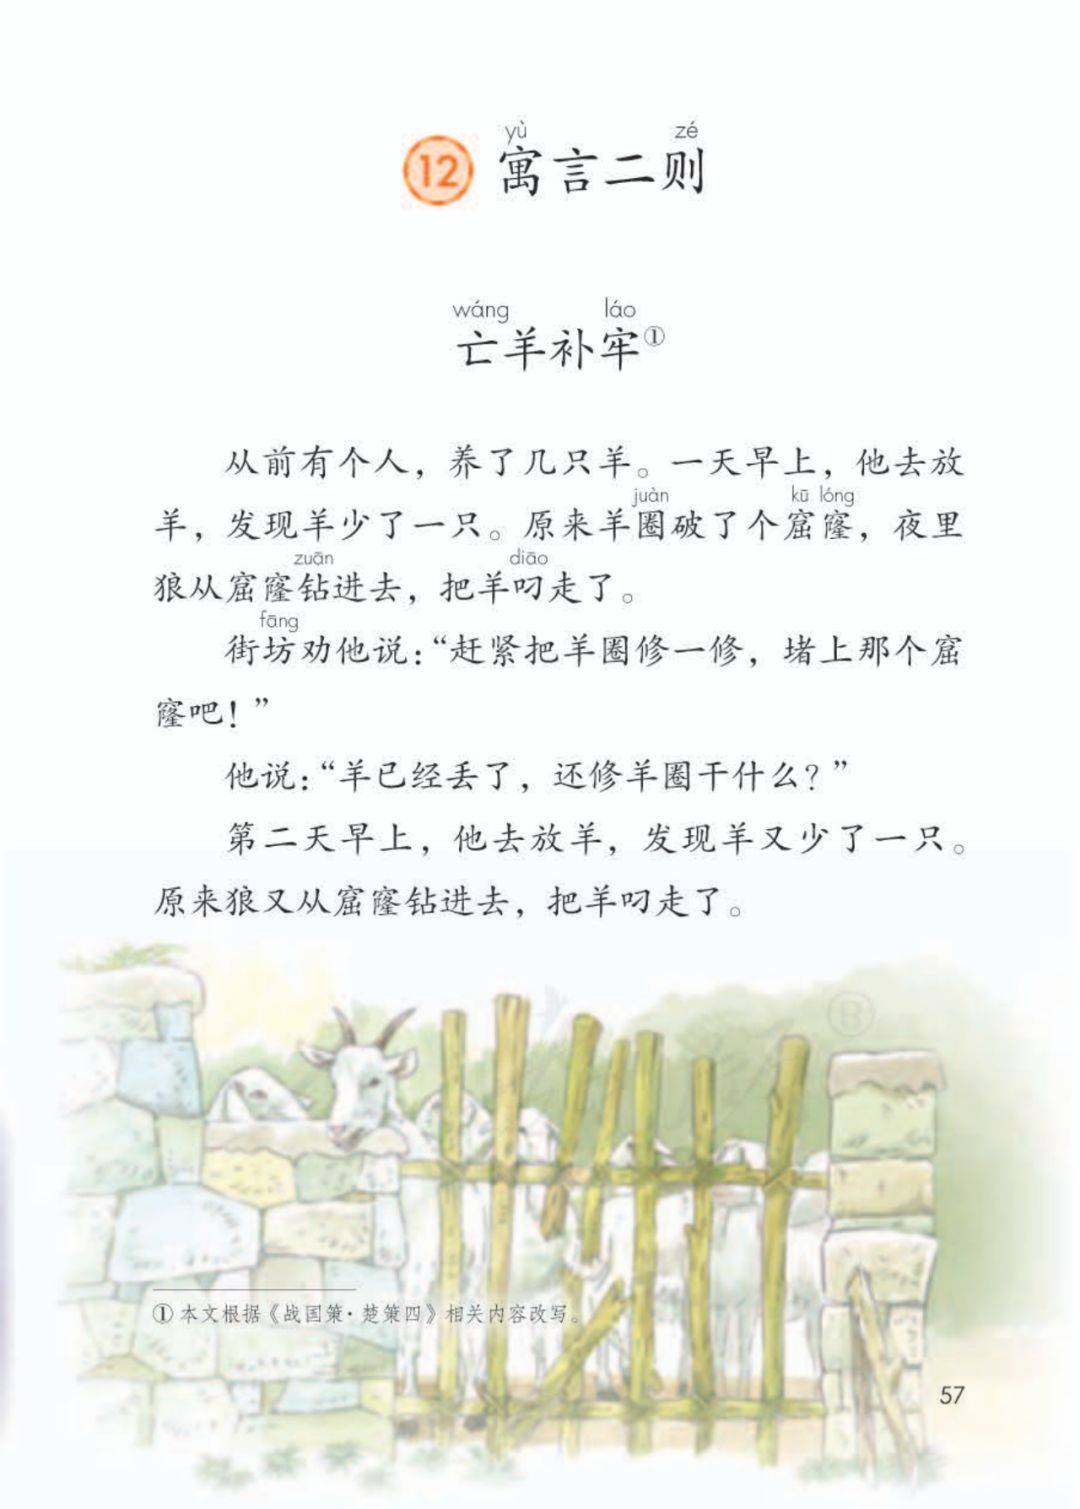 yù zé
12 寓言二则
wáng láo
亡羊补牢①
从前有个人，养了几只羊。一天早上，他去放
juàn kū lóng
羊，发现羊少了一只。原来羊圈破了个窟窿，夜里
zuān diāo
狼从窟窿钻进去，把羊叼走了。
fāng
街坊劝他说：“赶紧把羊圈修一修，堵上那个窟
窿吧！”
他说：“羊已经丢了，还修羊圈干什么？”
第二天早上，他去放羊，发现羊又少了一只。
原来狼又从窟窿钻进去，把羊叼走了。
® 
① 本文根据《战国策·楚策四》相关内容改写。
57